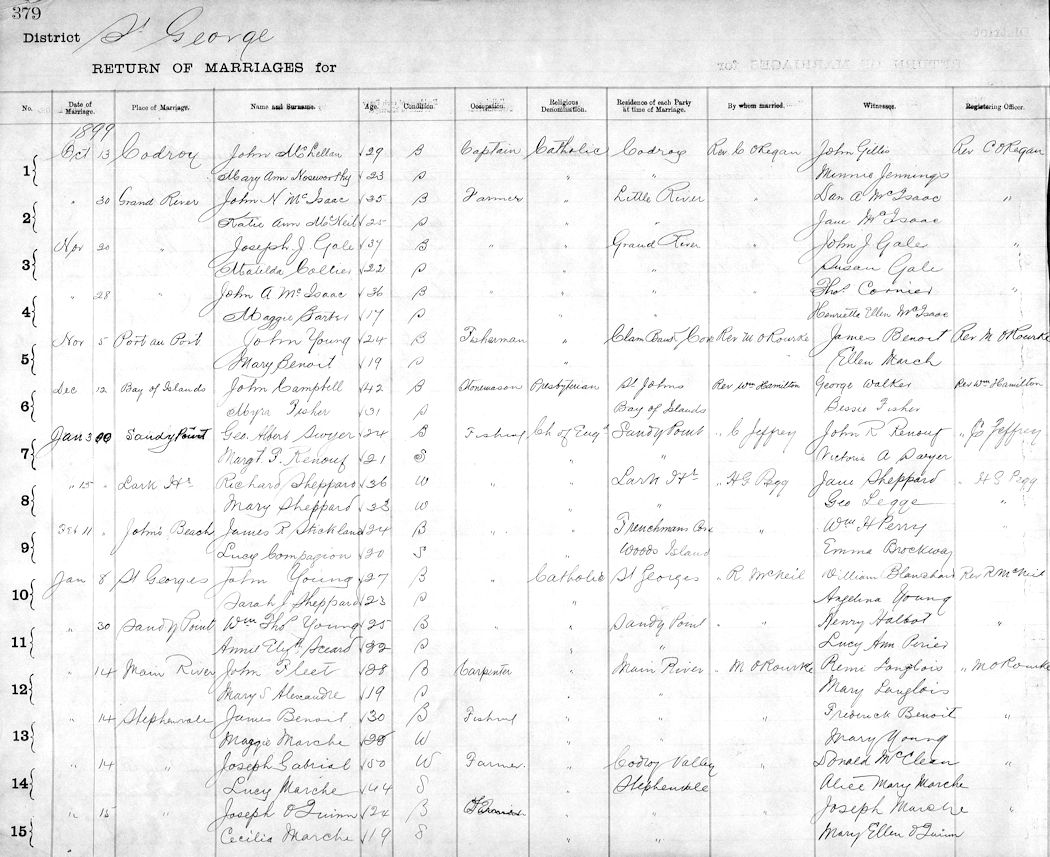 379
District St George
RETURN OF MARRIAGES for
No. Date of Marriage. Place of Marriage. Name and Surname. Age. Condition. Occupation. Religious Denomination. Residence of each Party at time of Marriage. By whom married. Witnesses. Registering Officer.
1899
1 Oct 13 Codroy John McLellan 29 B Captain Catholic Codroy Rev. C O'Regan John Gillis Rev. C O'Regan
Mary Ann Noseworthy 23 S " " " Minnie Jennings
2 " 30 Grand River John N McIsaac 35 B Farmer " Little River " Dan A McIsaac "
Katie Ann McNeil 25 S " " Jane McIsaac
3 Nov 20 " Joseph J Gale 37 B " " Grand River " John J Gale "
Matilda Collier 22 S " " Susan Gale
4 " 28 " John A McIsaac 36 B " " " " Thos Cornier "
Maggie 17 S " " Henrietta Ellen McIsaac
5 Nov 5 Port au Port John Young 24 B Fisherman " Clam Bank Cove Rev M O'Rourke James Benoit Rev M O'Rourke
Mary Benoit 19 S " " Ellen March
6 Dec 12 Bay of Islands John Campbell 42 B Stonemason Presbyterian St Johns Rev Wm Hamilton George Walker Rev Wm Hamilton
Myra Fisher 31 S Bay of Islands Bessie Fisher
7 Jan 3 00 Sandy Point Geo. Albert Swyer 24 B Fishing Ch of Engd Sandy Point " C Jeffrey John R Renouf " C Jeffrey
Margt F. Renouf 21 S " " Victoria A Swyer
8 " 15 " Lark Hr Richard Sheppard 36 W " " Lark Hr " H G Pegg Jane Sheppard " H G Pegg
Mary Sheppard 33 W " " Geo Legge
9 Feb 11 " John's Beach James R Stickland 24 B " " Frenchmans Cove " Wm H Perry "
Lucy Compagion 20 S " Woods Island Emma Brockway
10 Jan 8 St Georges John Young 27 B " Catholic St Georges " R McNeil William Blanchard Rev R McNeil
Sarah J Sheppard 23 S " " Angelina Young
11 " 30 Sandy Point Wm Thos Young 25 B " " Sandy Point " Henry Halbot "
Annie Elizth 22 S " " Lucy Ann Perier
12 " 14 Main River John Fleet 28 B Carpenter " Main River " M O'Rourke Remi Langlois " M O'Rourke
Mary S Alexandre 19 S " " Mary Langlois
13 " 14 Stephenvale James Benoit 30 B Fishing " " " Frederick Benoit "
Maggie Marche W " " Mary Young
14 " 14 " Joseph Gabrial 50 W Farmer " Codroy Valley " Donald McClean "
Lucy Marche 44 S " Stephenvale Alice Mary Marche
15 " 15 " Joseph O'Quinn 24 B " " " Joseph Marche "
Cecilia Marche 19 S " " Mary Ellen O'Quinn